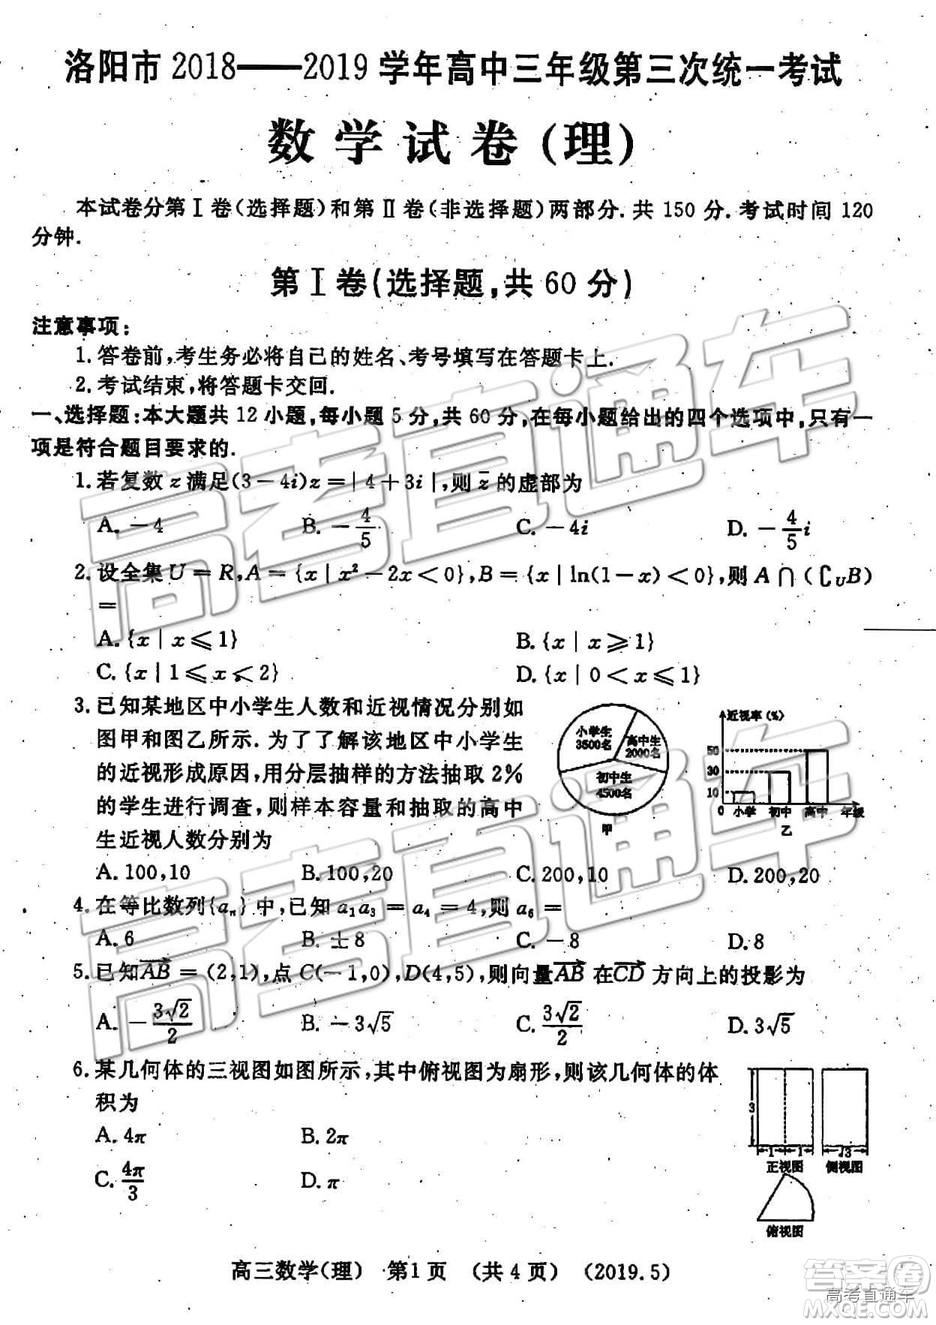 洛阳市 2018——2019 学年高中三年级第三次统一考试
数学试卷(理)
本试卷分第Ⅰ卷(选择题)和第Ⅱ卷(非选择题)两部分.共 150 分.考试时间 120
分钟.
第Ⅰ卷(选择题,共 60 分)
注意事项:
1.答卷前,考生务必将自己的姓名、考号填写在答题卡上.
2.考试结束,将答题卡交回.
一、选择题:本大题共 12 小题,每小题 5 分,共 60 分,在每小题给出的四个选项中,只有一
项是符合题目要求的.
1.若复数 z 满足(3-4i)z=|4+3i|,则 z̄ 的虚部为
A. -4 B. -4/5 C. -4i D. -4/5 i
2.设全集 U = R, A = {x | x² - 2x < 0}, B = {x | ln(1-x) < 0},则 A∩(∁UB)
=
A. {x | x ⩽ 1} B. {x | x ⩾ 1}
C. {x | 1 ⩽ x < 2} D. {x | 0 < x ⩽ 1}
3.已知某地区中小学生人数和近视情况分别如
图甲和图乙所示.为了了解该地区中小学生
的近视形成原因,用分层抽样的方法抽取 2%
的学生进行调查,则样本容量和抽取的高中
生近视人数分别为
小学生
3500名
高中生
2000名
初中生
4500名
甲
近视率(%)
50
30
10
0 小学 初中 高中 年级
乙
A. 100,10 B. 100,20 C. 200,10 D. 200,20
4.在等比数列{aₙ}中,已知 a₁a₃ = a₄ = 4,则 a₆ =
A. 6 B. ±8 C. -8 D. 8
5.已知 AB→ = (2,1),点 C(-1,0),D(4,5),则向量 AB→ 在 CD→ 方向上的投影为
A. -3√2/2 B. -3√5 C. 3√2/2 D. 3√5
6.某几何体的三视图如图所示,其中俯视图为扇形,则该几何体的体
积为
A. 4π B. 2π
C. 4π/3 D. π
3
1 1 √3
正视图 侧视图
俯视图
高三数学(理) 第1页 (共4页) (2019.5)
高考直通车
高考直通车
答案圈
高考直通车
MXQE.COM